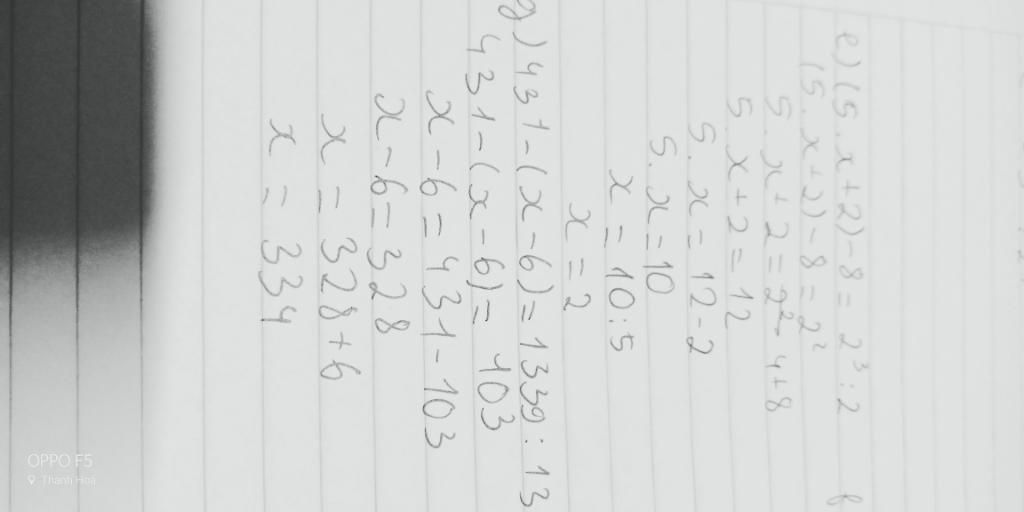 e) (5.x+2)-8 = 2³:2
(5.x+2)-8 = 2²
5.x+2 = 2² 4+8
5.x+2 = 12
5.x = 12-2
5.x = 10
x = 10:5
x = 2
g) 431-(x-6) = 1339:13
431-(x-6) = 403
x-6 = 431-103
x-6 = 328
x = 328+6
x = 334
OPPO F5
Thanh Hoá